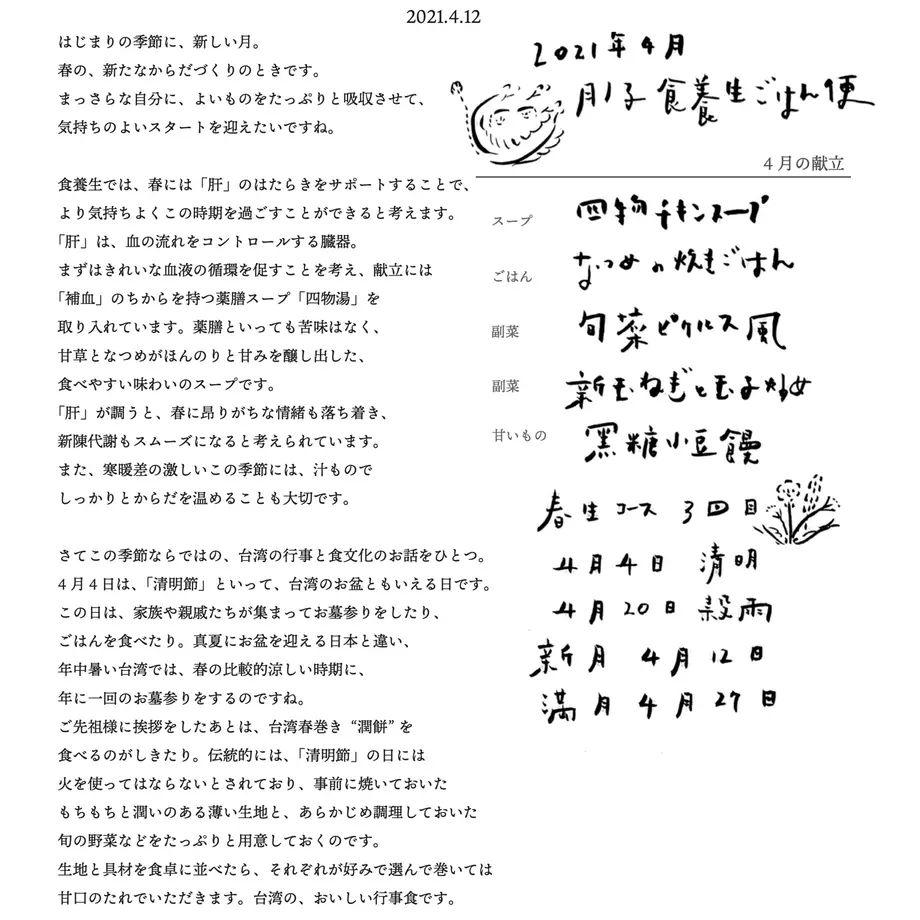 2021.4.12
はじまりの季節に、新しい月。
春の、新たなからだづくりのときです。
まっさらな自分に、よいものをたっぷりと吸収させて、
気持ちのよいスタートを迎えたいですね。
食養生では、春には「肝」のはたらきをサポートすることで、
より気持ちよくこの時期を過ごすことができると考えます。
「肝」は、血の流れをコントロールする臓器。
まずはきれいな血液の循環を促すことを考え、献立には
「補血」のちからを持つ薬膳スープ「四物湯」を
取り入れています。薬膳といっても苦味はなく、
甘草となつめがほんのりと甘みを醸し出した、
食べやすい味わいのスープです。
「肝」が調うと、春に昂りがちな情緒も落ち着き、
新陳代謝もスムーズになると考えられています。
また、寒暖差の激しいこの季節には、汁もので
しっかりとからだを温めることも大切です。
さてこの季節ならではの、台湾の行事と食文化のお話をひとつ。
4月4日は、「清明節」といって、台湾のお盆ともいえる日です。
この日は、家族や親戚たちが集まってお墓参りをしたり、
ごはんを食べたり。真夏にお盆を迎える日本と違い、
年中暑い台湾では、春の比較的涼しい時期に、
年に一回のお墓参りをするのですね。
ご先祖様に挨拶をしたあとは、台湾春巻き“潤餅”を
食べるのがしきたり。伝統的には、「清明節」の日には
火を使ってはならないとされており、事前に焼いておいた
もちもちと潤いのある薄い生地と、あらかじめ調理しておいた
旬の野菜などをたっぷりと用意しておくのです。
生地と具材を食卓に並べたら、それぞれが好みで選んで巻いては
甘口のたれでいただきます。台湾の、おいしい行事食です。
2021年4月
月ノ子 食養生ごはん便
4月の献立
スープ 四物チキンスープ
ごはん なつめの炊きごはん
副菜 旬菜ピクルス風
副菜 新玉ねぎと玉子炒め
甘いもの 黒糖小豆饅
春生コース 3回目
4月4日 清明
4月20日 穀雨
新月 4月12日
満月 4月27日